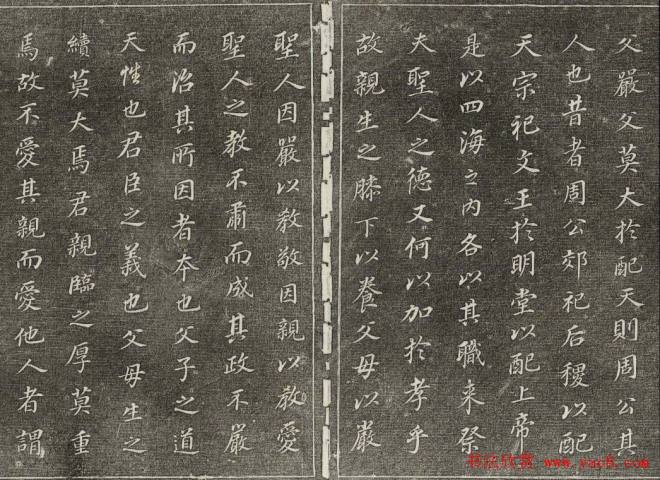 父嚴父莫大於配天則周公其
人也昔者周公郊祀后稷以配
天宗祀文王於明堂以配上帝
是以四海之内各以其職来祭
夫聖人之德又何以加於孝乎
故親生之膝下以養父母以嚴
聖人因嚴以教敬因親以教愛
聖人之教不肅而成其政不嚴
而治其所因者本也父子之道
天性也君臣之義也父母生之
續莫大焉君親臨之厚莫重
焉故不愛其親而愛他人者謂
书法欣赏 www.yac8.com